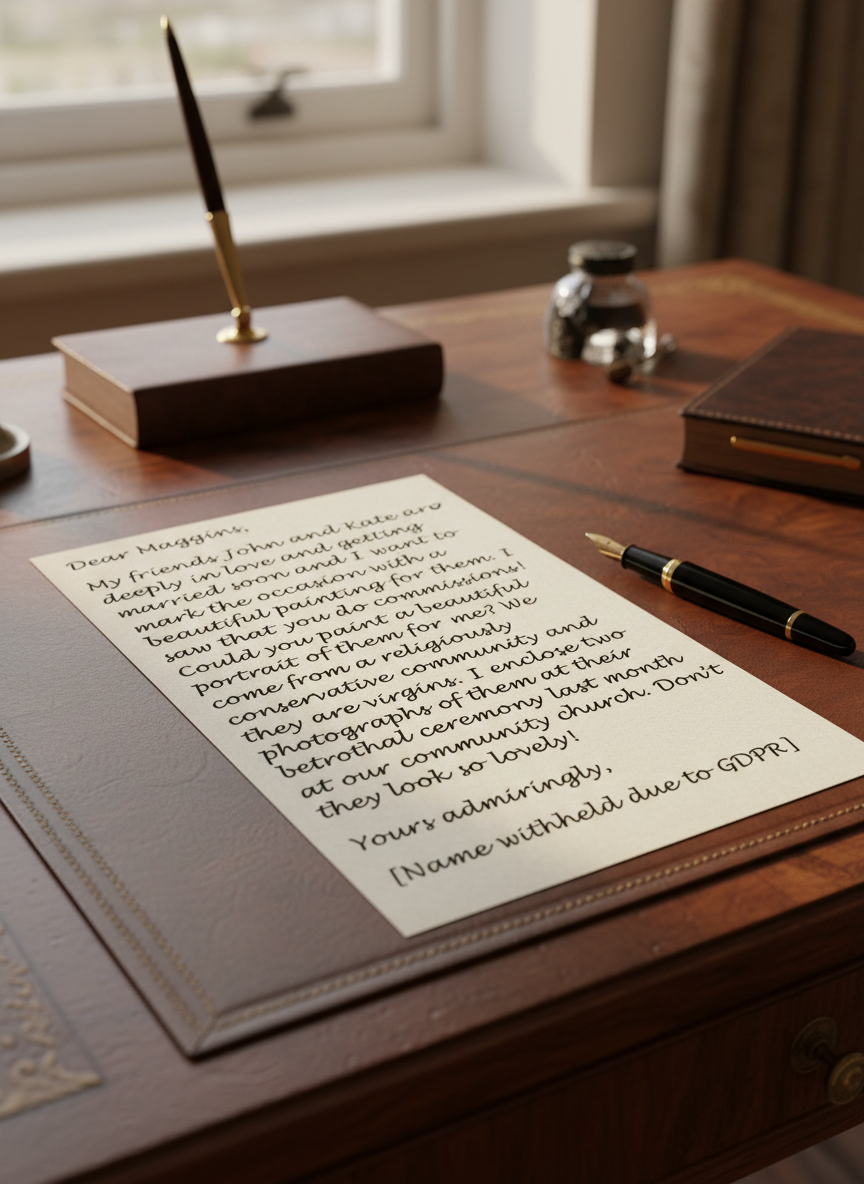 Dear Maggins,
My friends John and Kate are
deeply in love and getting
married soon and I want to
mark the occasion with a
beautiful painting for them. I
saw that you do commissions!
Could you paint a beautiful
portrait of them for me? We
come from a religiously
conservative community and
they are virgins. I enclose two
photographs of them at their
betrothal ceremony last month
at our community church. Don't
they look so lovely!
Yours admiringly,
[Name withheld due to GDPR]